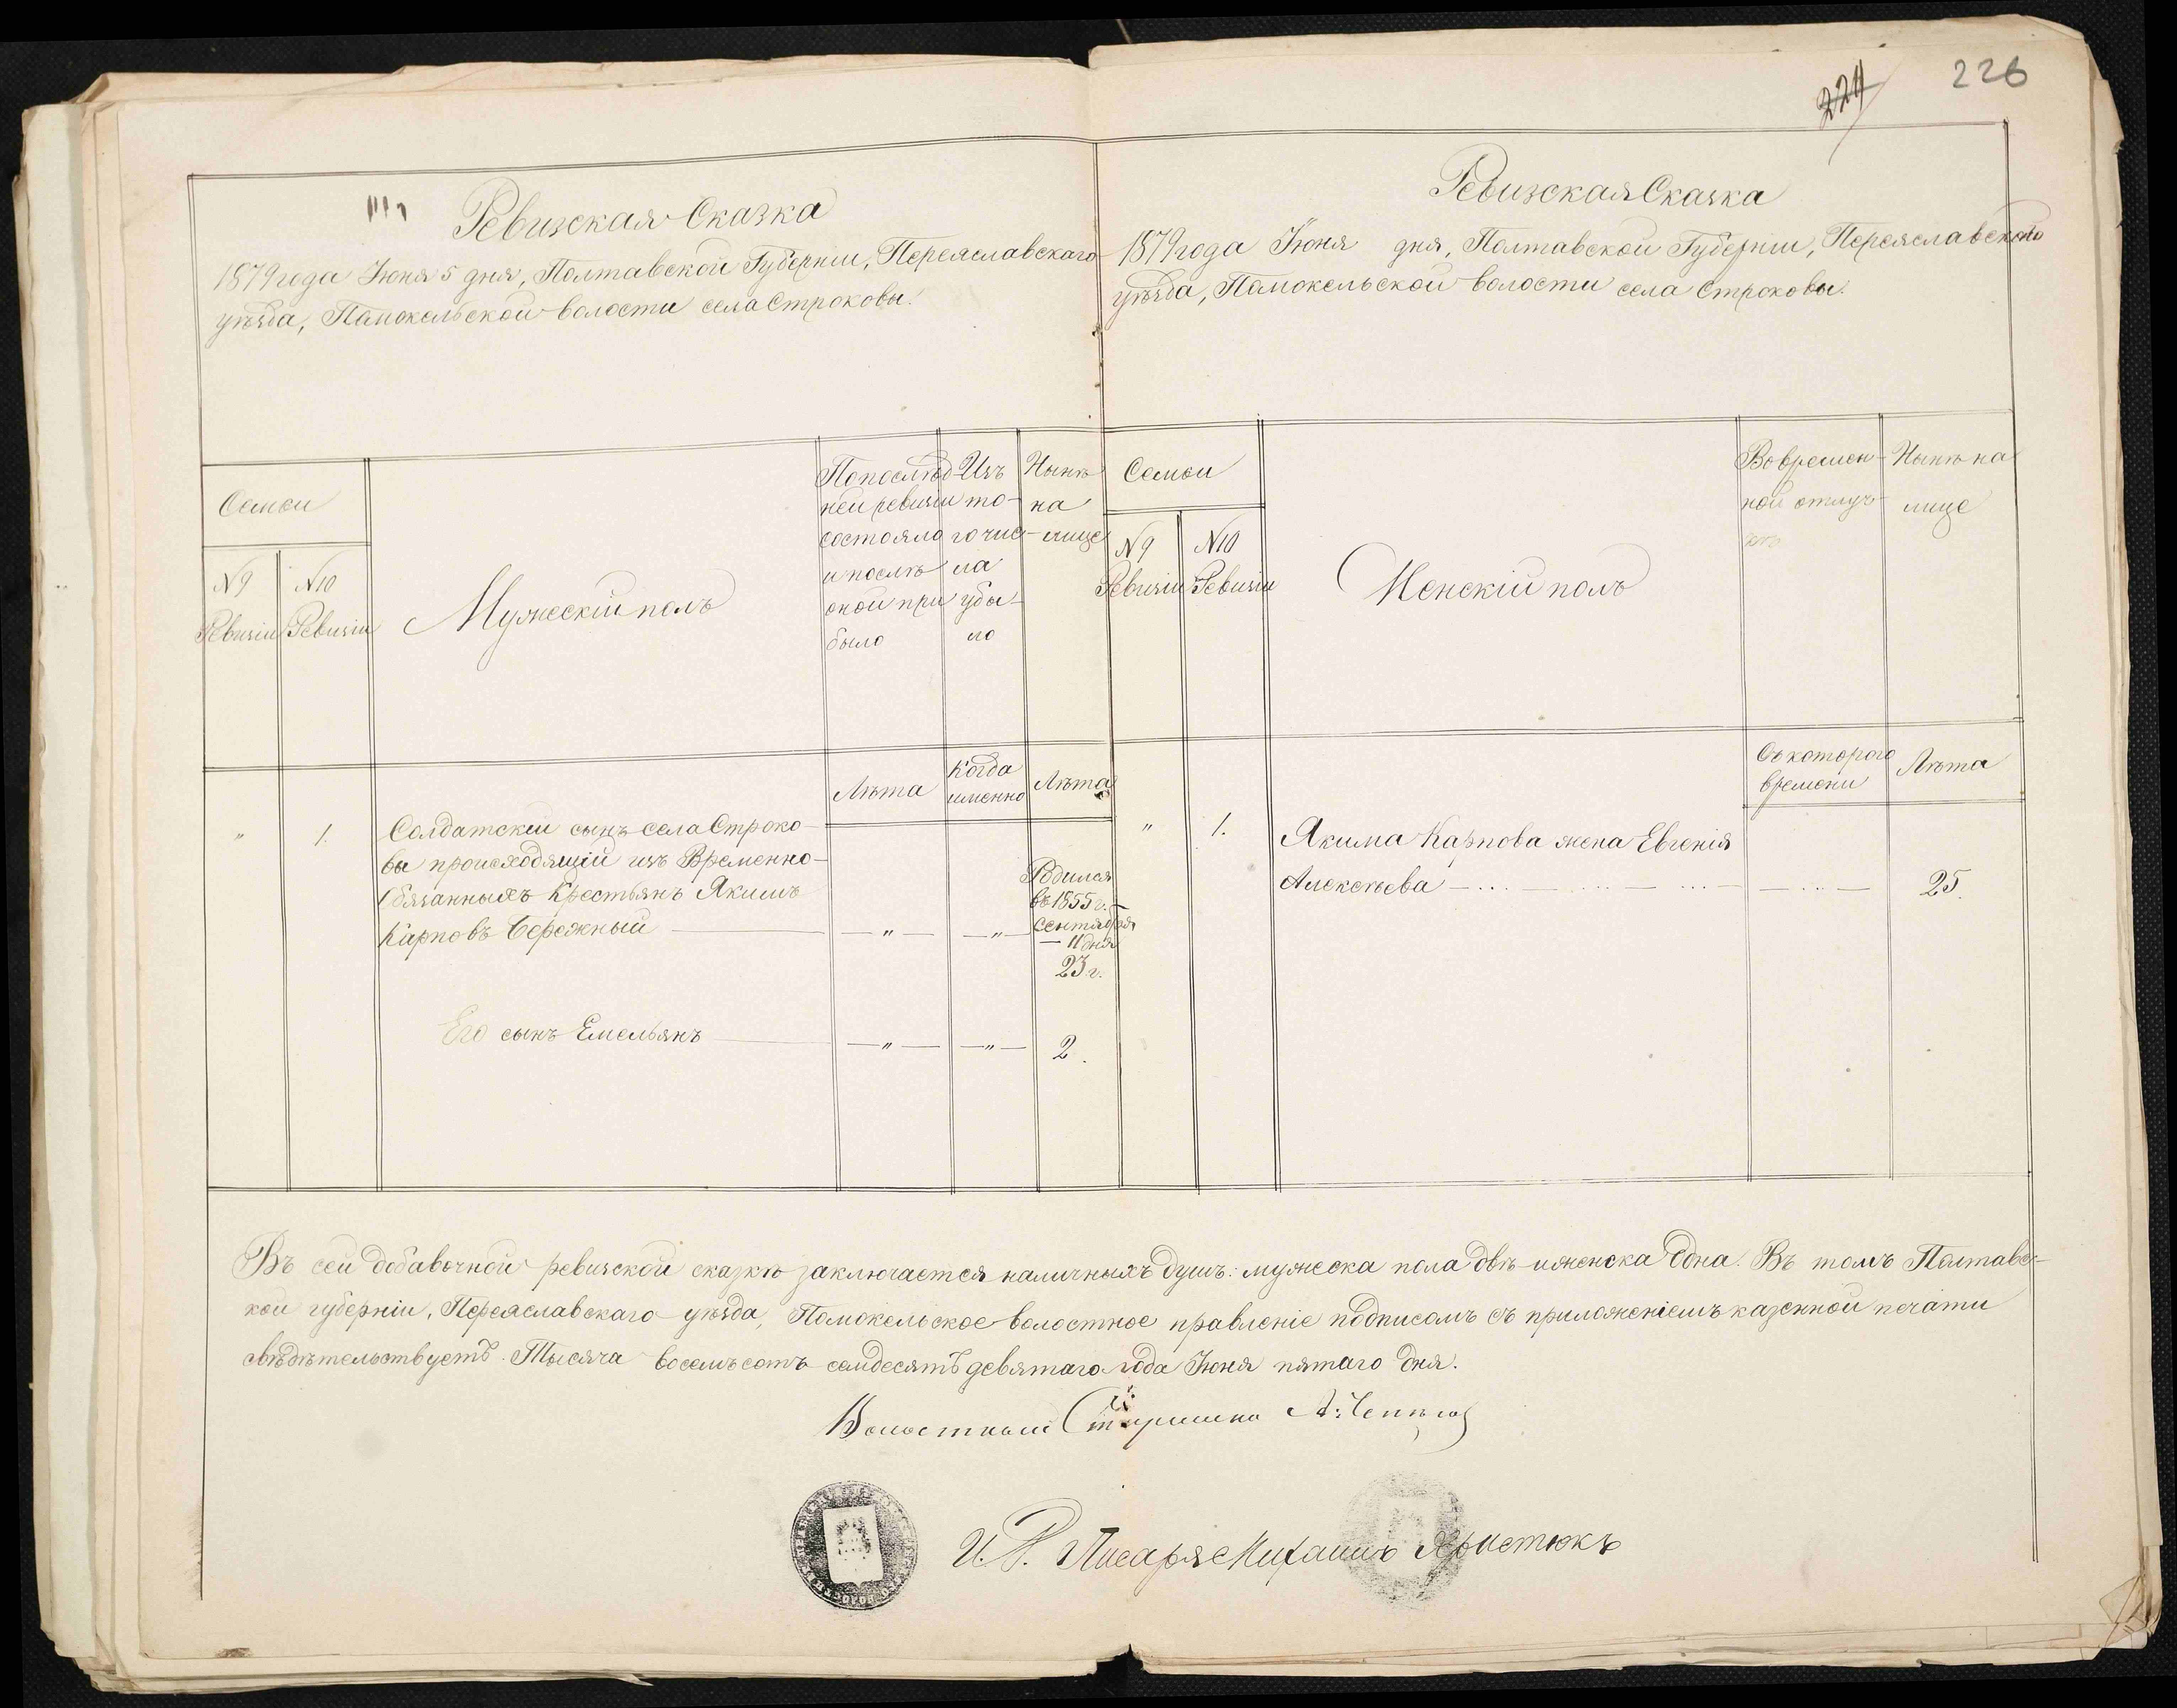 226
224
Ревизская Сказка
1879 года Июня 5 дня, Полтавской Губерніи, Переяславскаго
уѣзда, Помокельской волости села Строковы.
Ревизская Сказка
1879 года Июня дня, Полтавской Губерніи, Переяславскаго
уѣзда, Помокельской волости села Строковы.
Семьи
N9 Ревизіи
N10 Ревизіи
Мужескій полъ
По послѣд-
ней ревизіи
состояло
и послѣ
оной при
было
Изъ
то-
го чис-
ла
убы-
ло
Нынѣ
на
лице
Лѣта
Когда
именно
Лѣта
Семьи
N9 Ревизіи
N10 Ревизіи
Женскій полъ
Во времен-
ной отлуч-
кѣ
Нынѣ на
лице
Съ котораго
времени
Лѣта
" 1. Солдатскій сынъ села Строко-
вы происходящій изъ Временно-
Обязанныхъ Крестьянъ Якимъ
Карповъ Бережный — " — — " —
Родился
въ 1855 г.
Сентября
11 дня
23 г.
Его сынъ Емельянъ — " — — " — 2.
" 1. Якима Карпова жена Евгенія
Алексѣева 25.
Въ сей добавочной ревизской сказкѣ заключается наличныхъ душъ: мужеска пола двѣ и женска одна. Въ томъ Полтавс-
кой губерніи, Переяславскаго уѣзда, Помокельское волостное правленіе подписомъ съ приложеніемъ казенной печати
свѣдѣтельствуетъ. Тысяча восемьсотъ семдесятъ девятаго года Июня пятаго дня.
Волостной Старшина А:
И. Р. Писаря Михаилъ Христюкъ